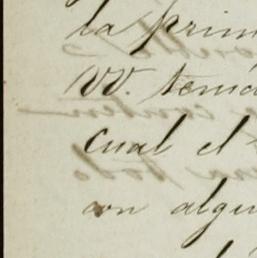 la prim
VV. tenía
cual el
con algu